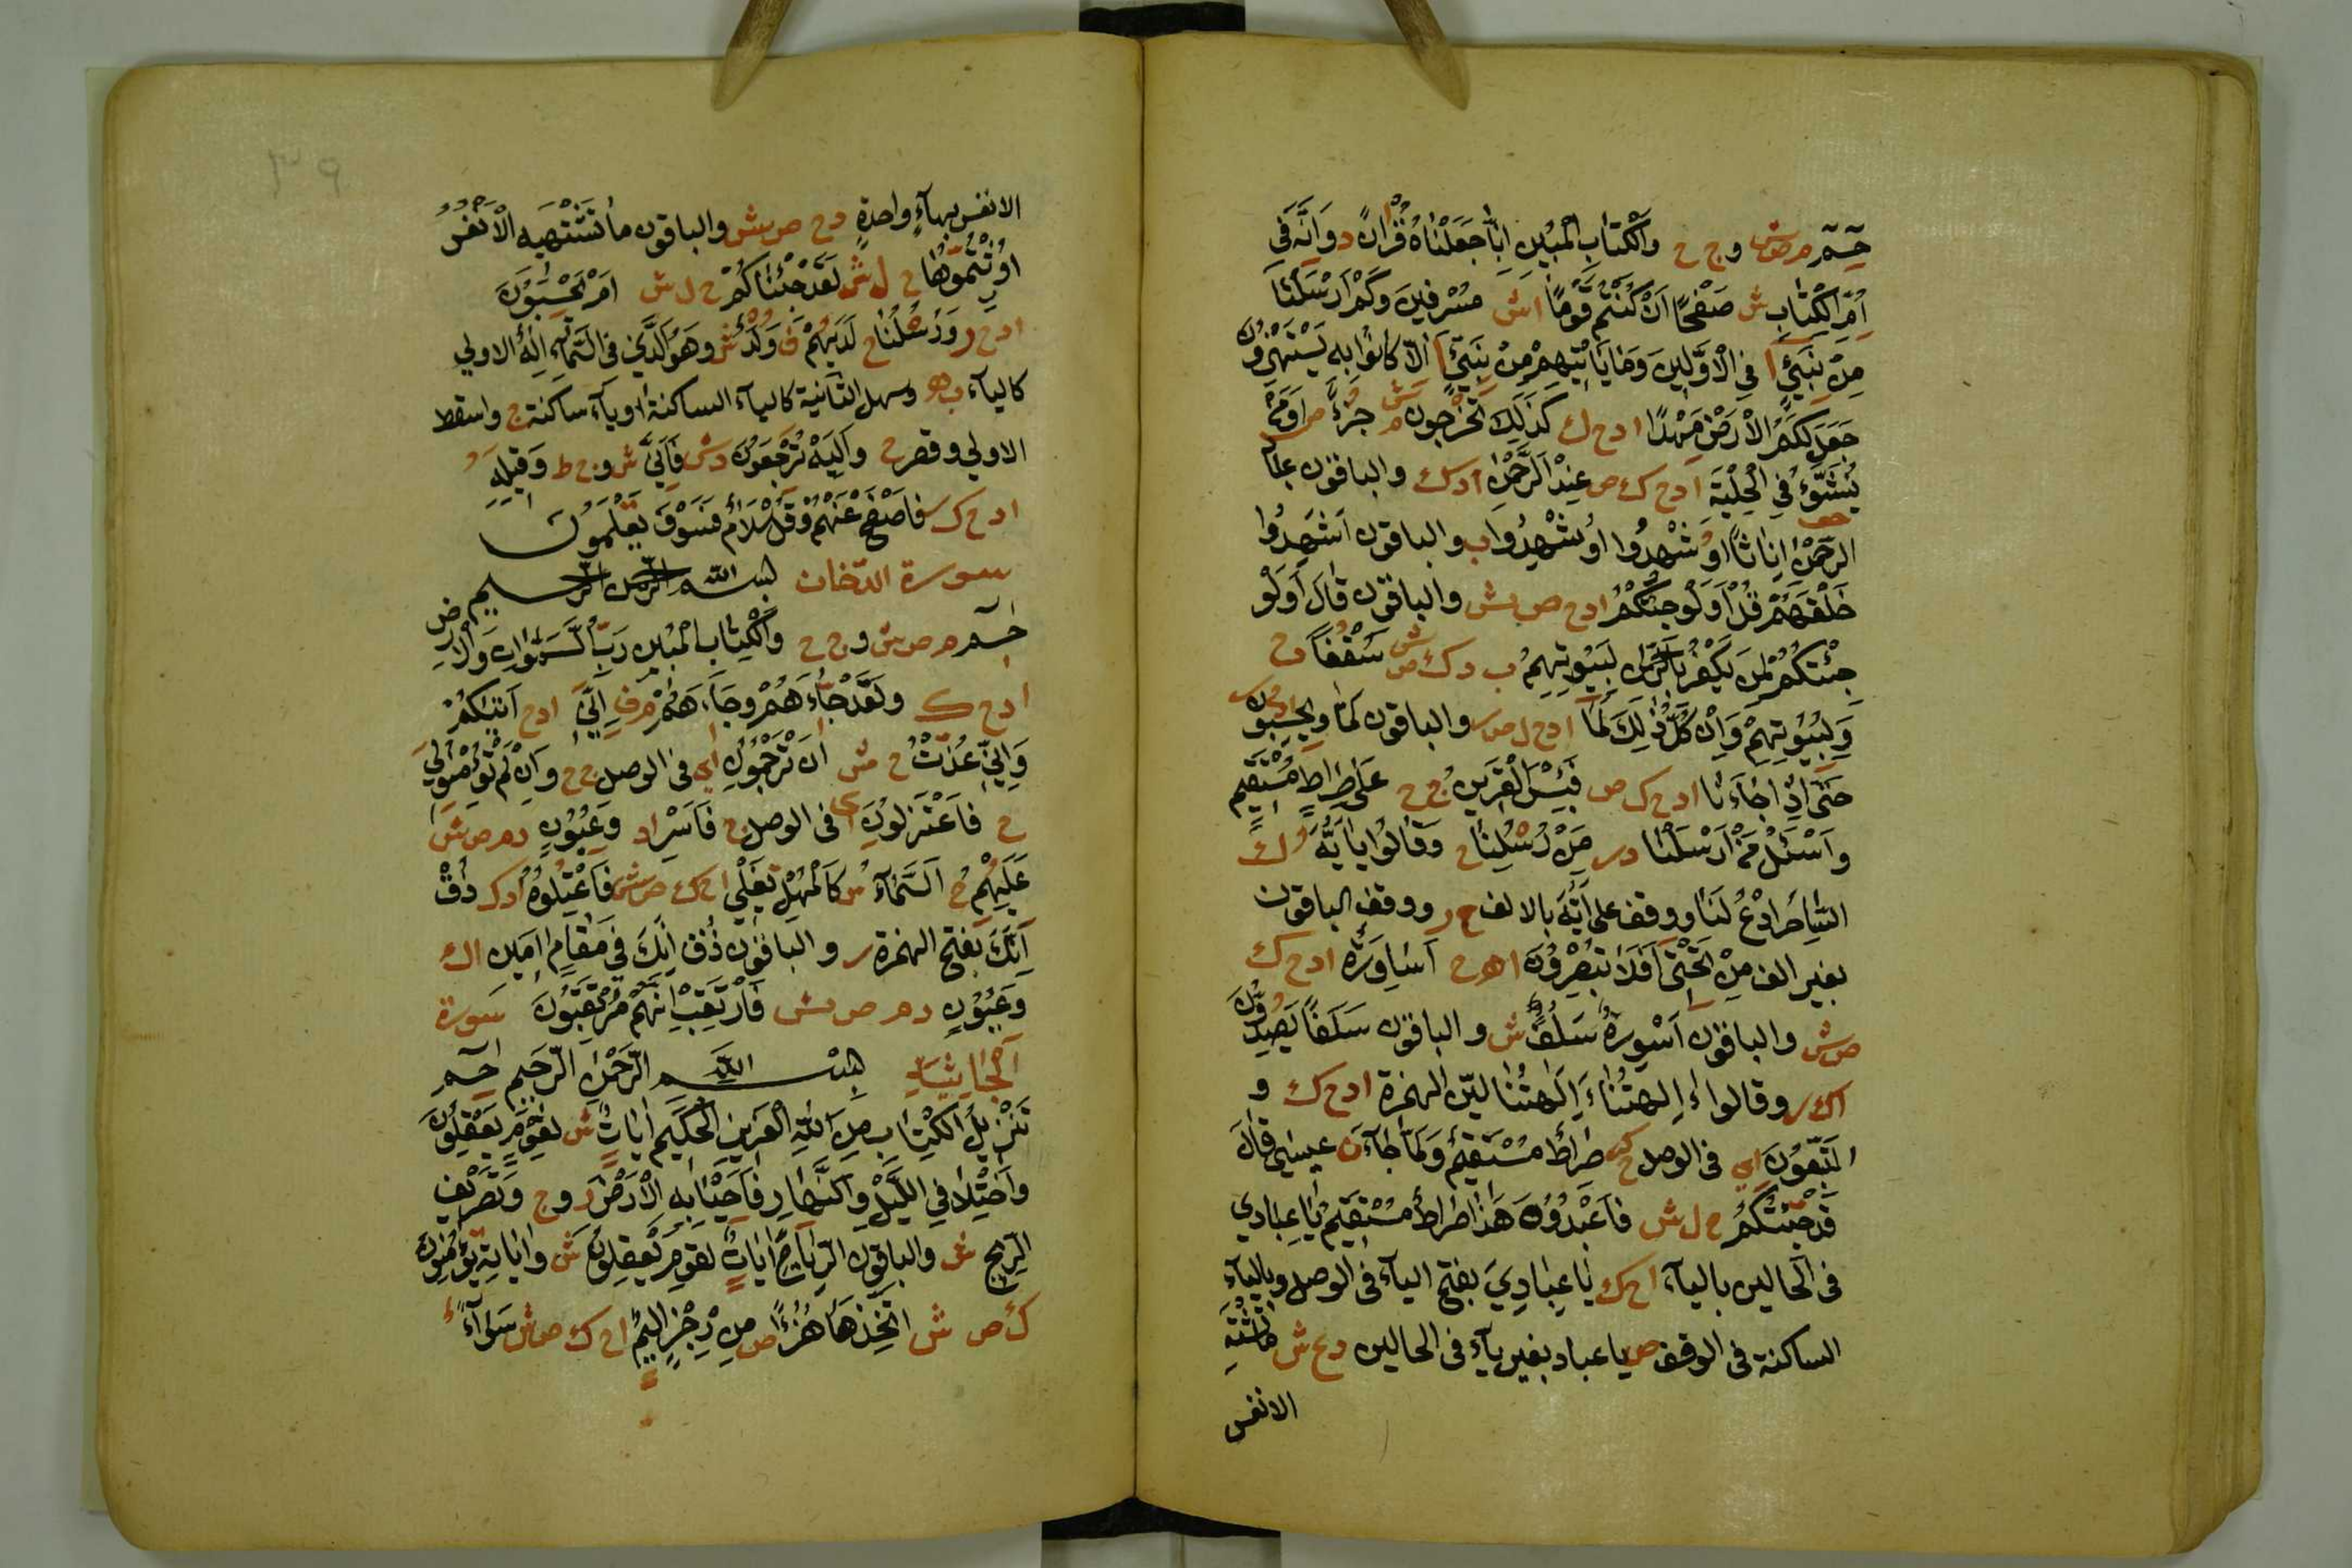 حٓمٓ م ص ش وج ح وَالْكِتَابِ الْمُبِينِ اِنَّا جَعَلْنَاهُ قُرْاٰنًا د وَاِنَّهُ فِي
اُمِّ الْكِتَابِ ش صَفْحًا اَنْ كُنْتُمْ قَوْمًا ا ش مُسْرِفِينَ وَكَمْ اَرْسَلْنَا
مِنْ نَبِيٍّ ا فِي الْاَوَّلِينَ وَمَا يَأْتِيهِمْ مِنْ نَبِيٍّ ا اِلَّا كَانُوا بِهِ يَسْتَهْزِؤُنَ
جَعَلَ لَكُمُ الْاَرْضَ مَهْدًا ا د ح ك كَذٰلِكَ تُخْرَجُونَ م ش جُزْءًا ص اَوَمَنْ
يُنَشَّؤُا فِي الْحِلْيَةِ ا د ح ك ص عِنْدَ الرَّحْمٰنِ ا د ك والباقون عباد
الرحمٰن اِنَاثًا اَوُشْهِدُوا ا اَوُشْهِدُوا ب والباقون اَشَهِدُوا
خَلْقَهُمْ قُلْ اَوَلَوْ جِئْتُكُمْ ا د ح ص ش والباقون قَالَ اَوَلَوْ
جِئْتُكُمْ لِمَنْ يَكْفُرُ بِالرَّحْمٰنِ لِبُيُوتِهِمْ ب د ك ص ش سَقْفًا د ح
وَلِبُيُوتِهِمْ وَاِنْ كُلُّ ذٰلِكَ لَمَا ا د ح ل ص ر والباقون لَمَّا وَيَحْسِبُونَ ا د ح ر
حَتّٰى اِذَا جَاءَنَا ا د ح ك ص فَبِئْسَ الْقَرِينُ ج ح عَلٰى صِرَاطٍ مُسْتَقِيمٍ
وَاسْئَلْ مَنْ اَرْسَلْنَا د ر مِنْ رُسُلِنَا ح وَقَالُوا يَا اَيُّهَ ك
السَّاحِرُ ادْعُ لَنَا ووقف على اَيُّهَ بالالف ح ر ووقف الباقون
بغير الف مِنْ تَحْتِيَ اَفَلَا تُبْصِرُونَ ا ه ح اَسَاوِرَةٌ ا د ح ك
ص ش والباقون اَسْوِرَةٌ سُلُفًا ش والباقون سَلَفًا يَصُدُّونَ
ا ك ر وقالوا ءَاِلٰهَتُنَا ءَاَالِهَتُنَا ليّن الهمزة ا د ح ك و
اتَّبِعُونِ اي في الوصل ح صِرَاطٌ مُسْتَقِيمٌ وَلَمَّا جَاءَ ن عيسى قَالَ
قَدْ جِئْتُكُمْ ح ل ش فَاعْبُدُوهُ هٰذَا صِرَاطٌ مُسْتَقِيمٌ يَا عِبَادِي
في الحالين بالياء ا ح ك يَا عِبَادِيَ بفتح الياء في الوصل وبالياء
الساكنة في الوقف ص يا عباد بغير ياء في الحالين د ع ش مَا تَشْتَهِ
الانفس
٣٩
الانفس بهاءٍ واحدةٍ د ح ص ش والباقون مَا تَشْتَهِيهِ الْاَنْفُسُ
اُورِثْتُمُوهَا ح ل ش لَقَدْ جِئْنَاكُمْ ح ل ش اَمْ يَحْسِبُونَ
ا د ح ر وَرُسْلُنَا ح لَدَيْهُمْ ف وَلَدٌ ش وَهُوَ الَّذِي فِي السَّمَاءِ اِلٰهٌ الاولى
كالياء ب ه وسهل الثانية كالياء الساكنة او ياء ساكنة ج واسقط
الاولى وقصر ح وَاِلَيْهِ تُرْجَعُونَ د ش فَاَنّٰى ش وج ط وَقِيلِهِ
ا د ح ك ر فَاصْفَحْ عَنْهُمْ وَقُلْ سَلَامٌ فَسَوْفَ تَعْلَمُونَ
سورة الدخان بسم الله الرحمن الرحيم
حٓمٓ م ص ش وج ح وَالْكِتَابِ الْمُبِينِ رَبُّ السَّمٰوَاتِ وَالْاَرْضِ
ا د ح ك وَلَقَدْ جَاءَهُمْ وَجَاءَهُمْ م ف اِنِّيَ ا د ح اٰتِيكُمْ
وَاِنِّي عُذْتُ ح ش اَنْ تَرْجُمُونِ اي في الوصل ج ح وَاِنْ لَمْ تُؤْمِنُوا لِيَ
ح فَاعْتَزِلُونِ اي في الوصل ج فَاسْرِ ا د وَعِيُونٍ د م ص ش
عَلَيْهُمْ ح السَّمَاءُ ش كَالْمُهْلِ تَغْلِي ا ح ك ص ش فَاعْتُلُوهُ ا د ك ذُقْ
اَنَّكَ بفتح الهمزة ر والباقون ذُقْ اِنَّكَ فِي مَقَامٍ اَمِينٍ ا ك
وَعُيُونٍ د م ص ش فَارْتَقِبْ اِنَّهُمْ مُرْتَقِبُونَ سورة
الجاثية بسم الله الرحمن الرحيم حٓمٓ
تَنْزِيلُ الْكِتَابِ مِنَ اللّٰهِ الْعَزِيزِ الْحَكِيمِ اٰيَاتٍ ش لِقَوْمٍ يَعْقِلُونَ
وَاخْتِلَافِ اللَّيْلِ وَالنَّهَارِ فَاَحْيَا بِهِ الْاَرْضَ ر وج وَتَصْرِيفِ
الرِّيحِ ش والباقون الرِّيَاحِ اٰيَاتٍ لِقَوْمٍ يَعْقِلُونَ ش وَاٰيَاتِهِ تُؤْمِنُونَ
ك ص ش اتَّخَذَهَا هُزُءًا ص مِنْ رِجْزٍ اَلِيمٍ ا ح ك ص ش سَوَاءً